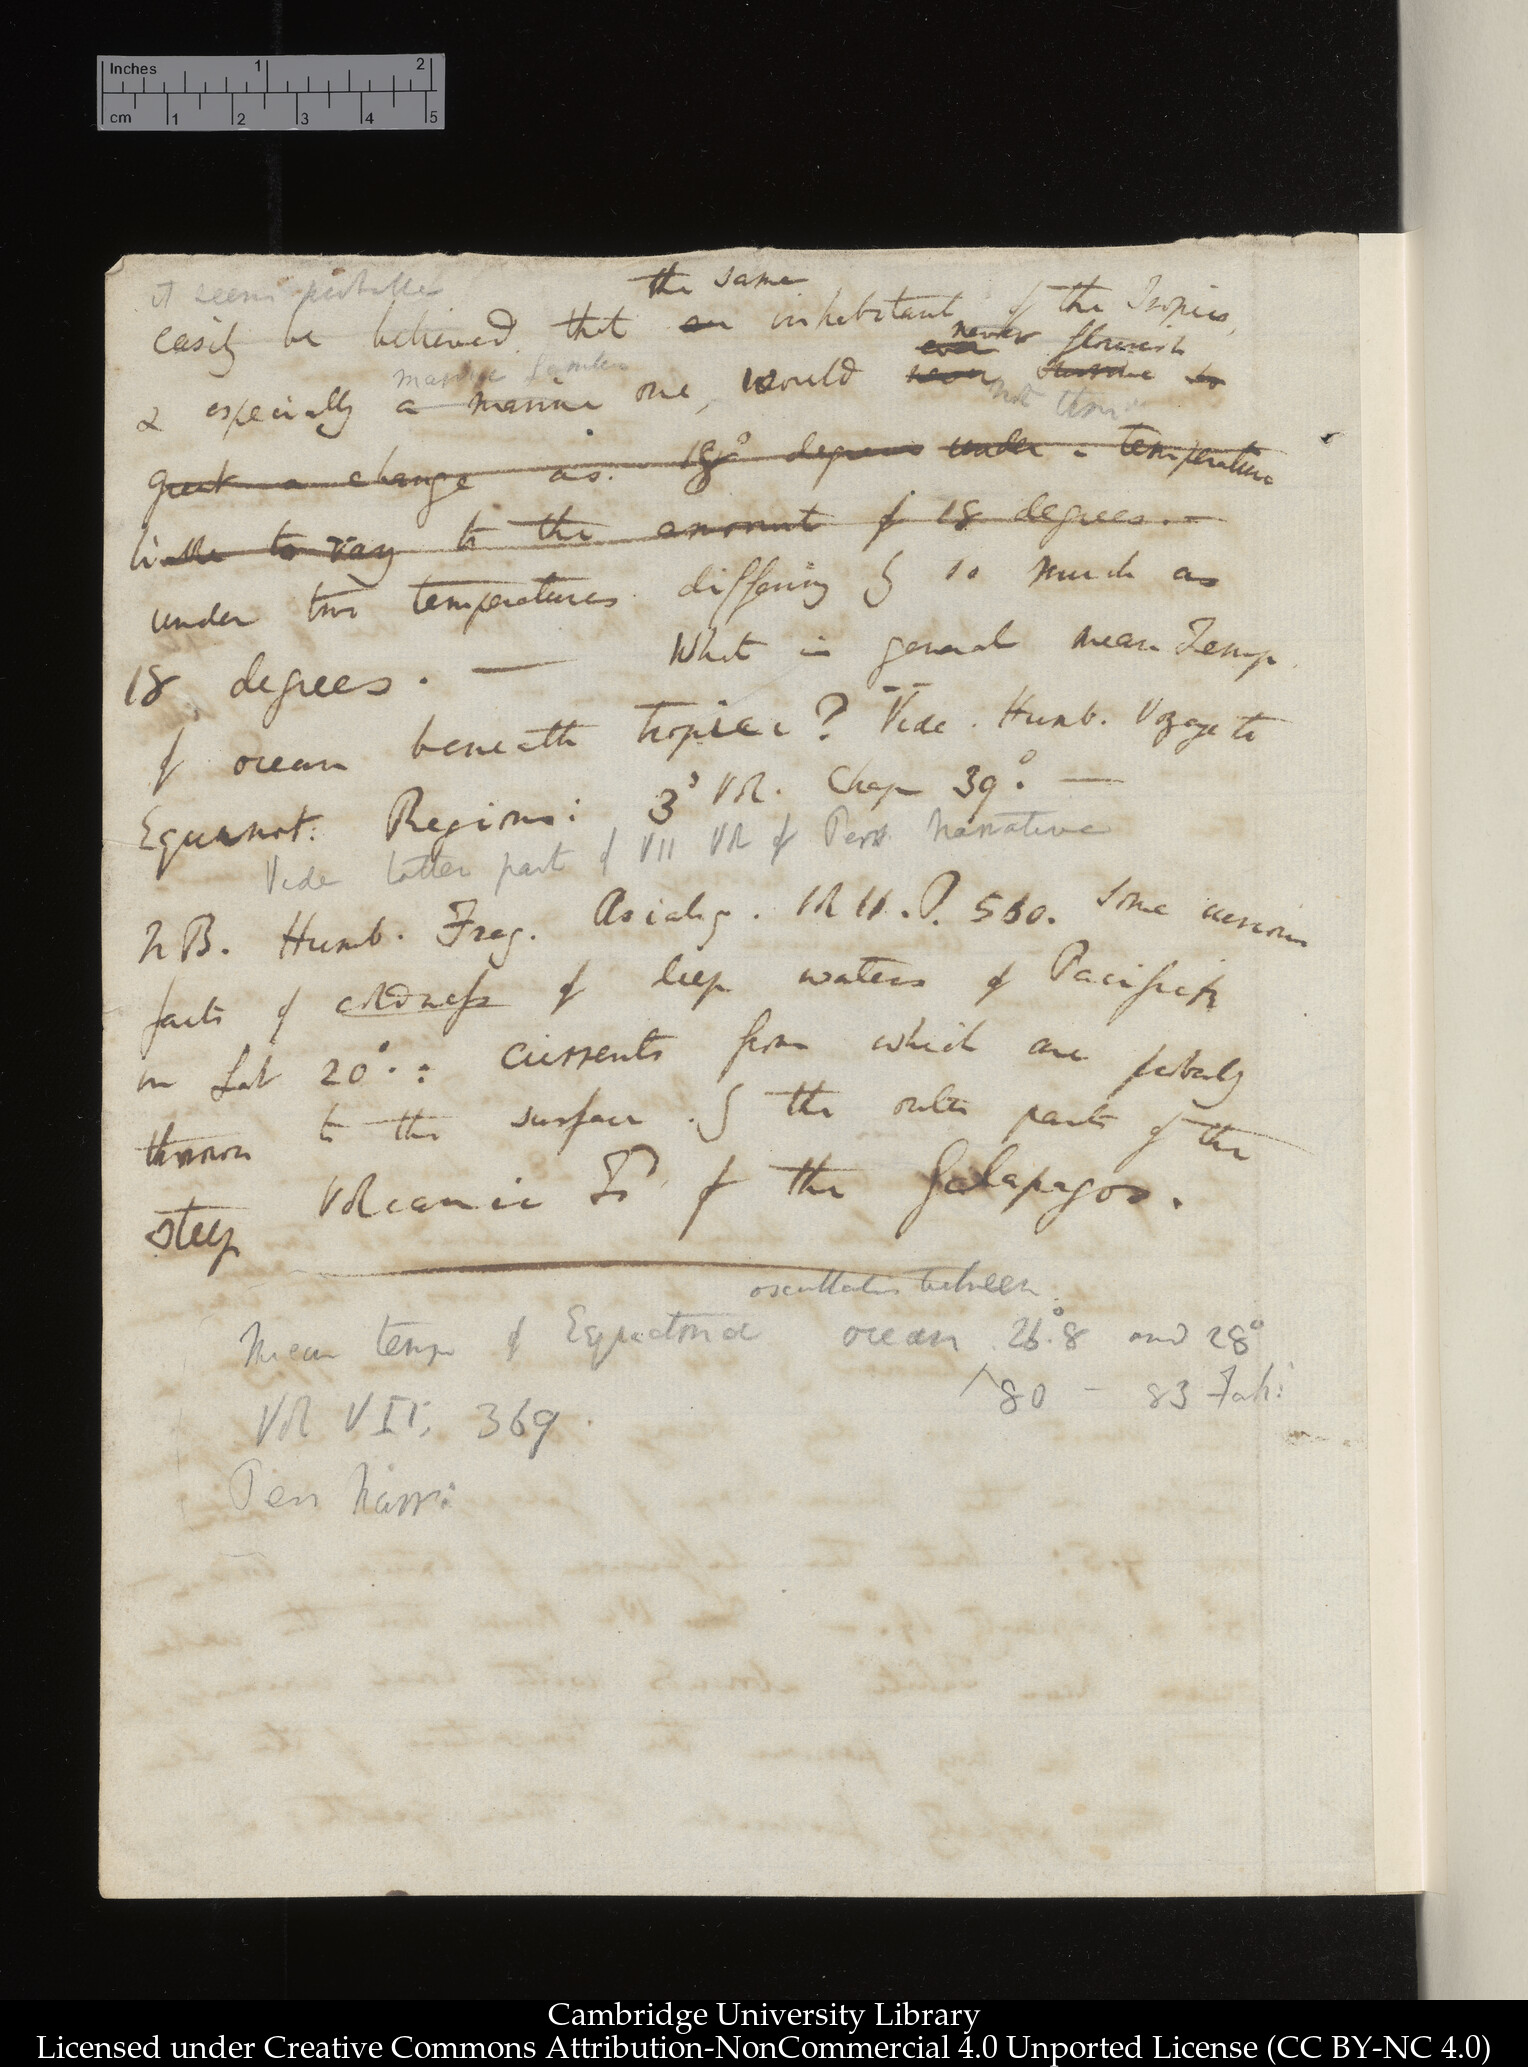 Inches 1 2
cm 1 2 3 4 5
it seems probable
the same
easily be believed, that an inhabitant of the Tropics,
never flourish
ever
marine
& especially a marine one, would never survive so
not
great a change as 18° degrees under a temperature
liable to vary to the amount of 18 degrees. —
under two temperatures differing by so much as
18 degrees. — What is general mean Temp.
of ocean beneath tropics? Vide. Humb. Voyage to
Equinoct: Regions: 3d Vol. Chap 39°. —
Vide latter part of VII Vol of Pers. Narrative
NB. Humb. Frag. Asiatiq. Vol II. P. 560. Some curious
facts of coldness of deep waters of Pacifick
in Lat 20°. : currents from which are probably
thrown to the surface. by the outer parts of the
steep Volcanic Is of the Galapagos.
oscillates between
Mean temp of Equatorial ocean 26°.8 and 28°
80 – 83 Fah:
Vol VII, 369.
Pers Narr:
Cambridge University Library
Licensed under Creative Commons Attribution-NonCommercial 4.0 Unported License (CC BY-NC 4.0)